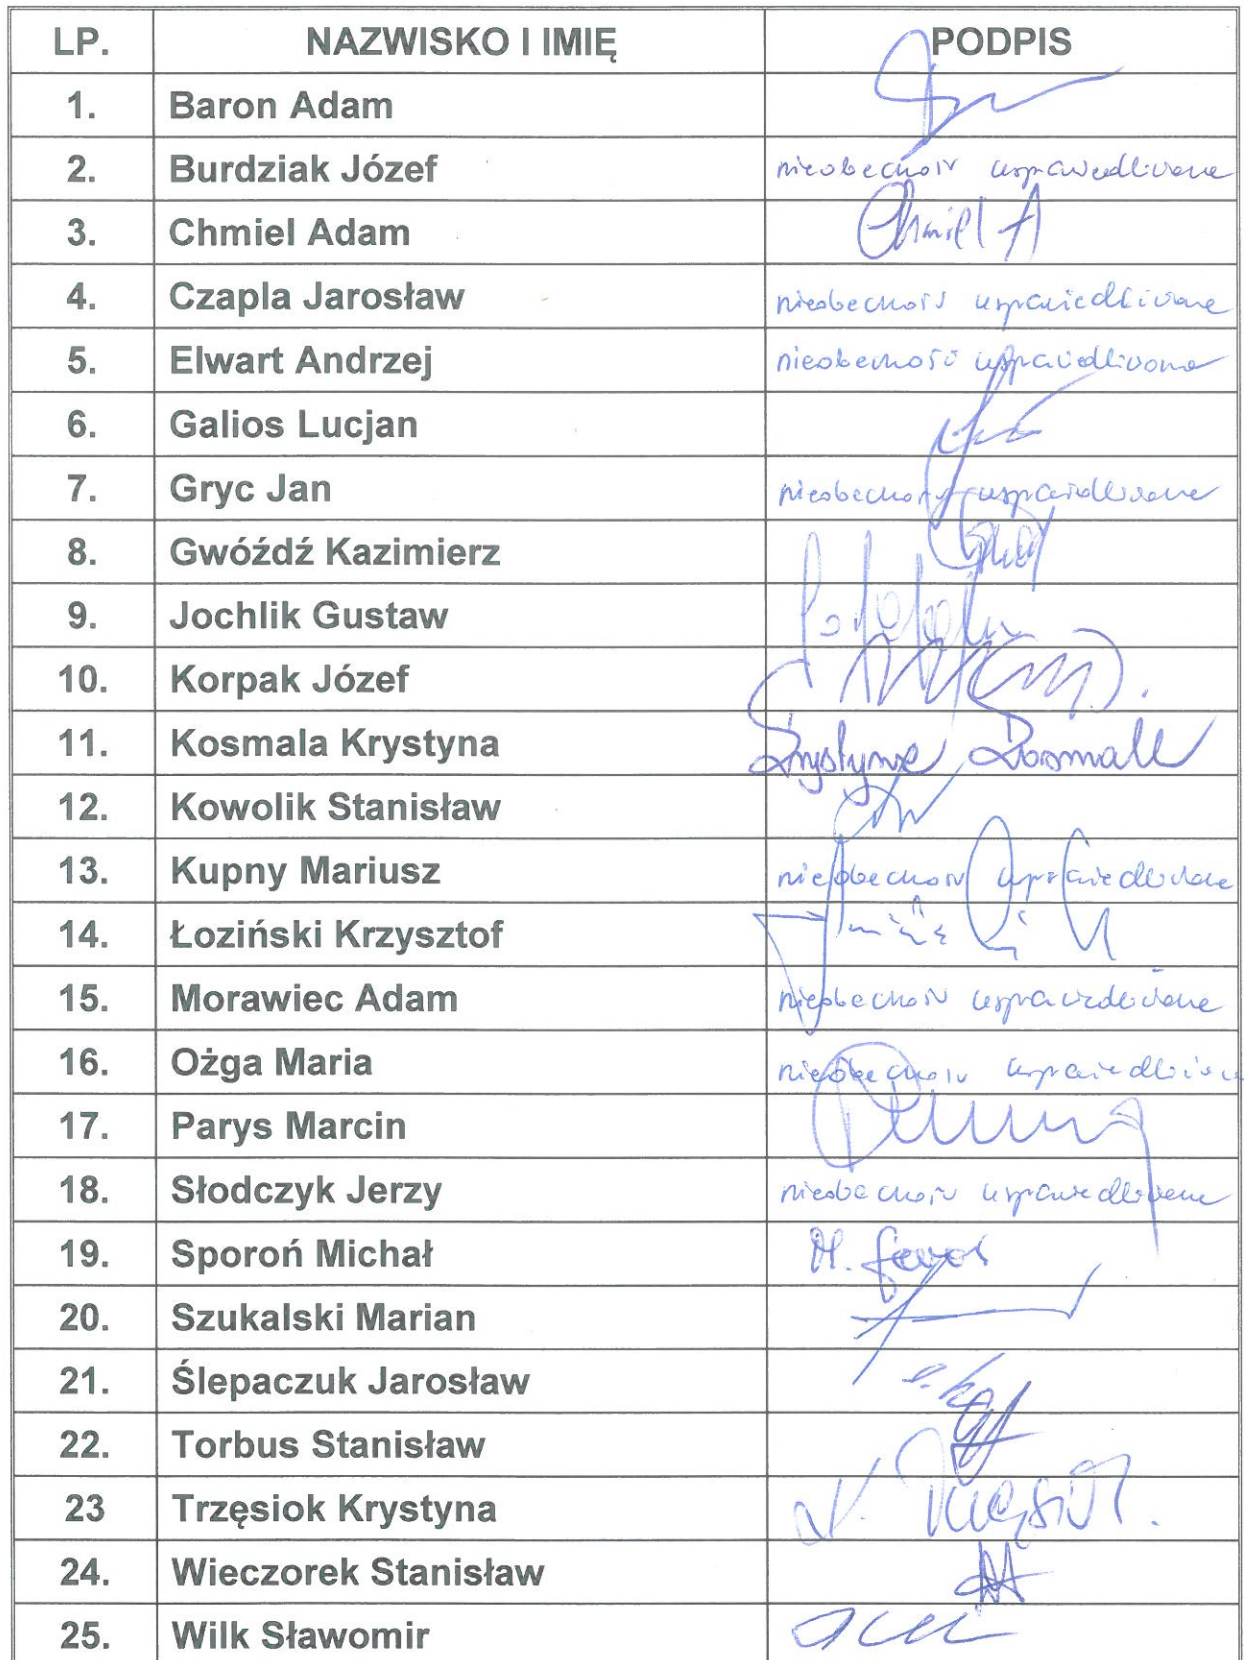 LP. NAZWISKO I IMIĘ PODPIS
1. Baron Adam
2. Burdziak Józef nieobecność usprawiedliwiona
3. Chmiel Adam Chmiel A
4. Czapla Jarosław nieobecność usprawiedliwiona
5. Elwart Andrzej nieobecność usprawiedliwiona
6. Galios Lucjan
7. Gryc Jan nieobecność usprawiedliwiona
8. Gwóźdź Kazimierz
9. Jochlik Gustaw
10. Korpak Józef
11. Kosmala Krystyna Krystyna Kosmala
12. Kowolik Stanisław
13. Kupny Mariusz nieobecność usprawiedliwiona
14. Łoziński Krzysztof
15. Morawiec Adam nieobecność usprawiedliwiona
16. Ożga Maria nieobecność usprawiedliwiona
17. Parys Marcin
18. Słodczyk Jerzy nieobecność usprawiedliwiona
19. Sporoń Michał M.
20. Szukalski Marian
21. Ślepaczuk Jarosław
22. Torbus Stanisław
23 Trzęsiok Krystyna K. Trzęsiok.
24. Wieczorek Stanisław
25. Wilk Sławomir